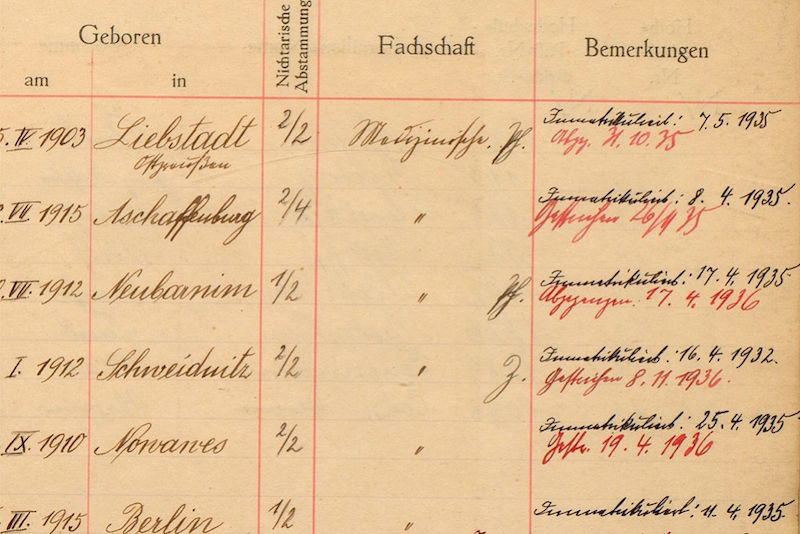 Geboren
am
in
Nichtarische
Abstammung
Fachschaft
Bemerkungen
5. IV. 1903 Liebstadt 2/2 Medizinische. Immatrikuliert: 7. 5. 1935
Ostpreußen Abg. 31. 10. 35
VII 1915 Aschaffenburg 2/4 " Immatrikuliert: 8. 4. 1935.
Gestrichen 26/11 35
VII. 1912 Neubarnim 1/2 " Immatrikuliert: 17. 4. 1935
Abgegangen. 17. 4. 1936
I. 1912 Schweidnitz 2/2 " Z. Immatrikuliert: 16. 4. 1932.
Gestrichen 8. 11. 1936.
IX. 1910 Nowawes 2/2 " Immatrikuliert: 25. 4. 1935
Gestr. 19. 4. 1936
III. 1915 Berlin 1/2 " Immatrikuliert: 11. 4. 1935.